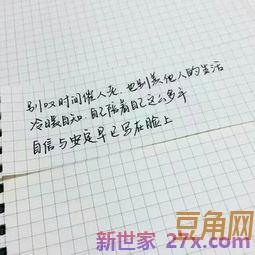 别叹时间催人老,也别羡他人的生活
冷暖自知.自己陪着自己这么多年
自信与安定早已写在脸上
豆角网
新世家 27x.com